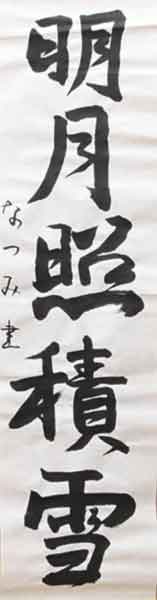 明月照積雪
なつみ書